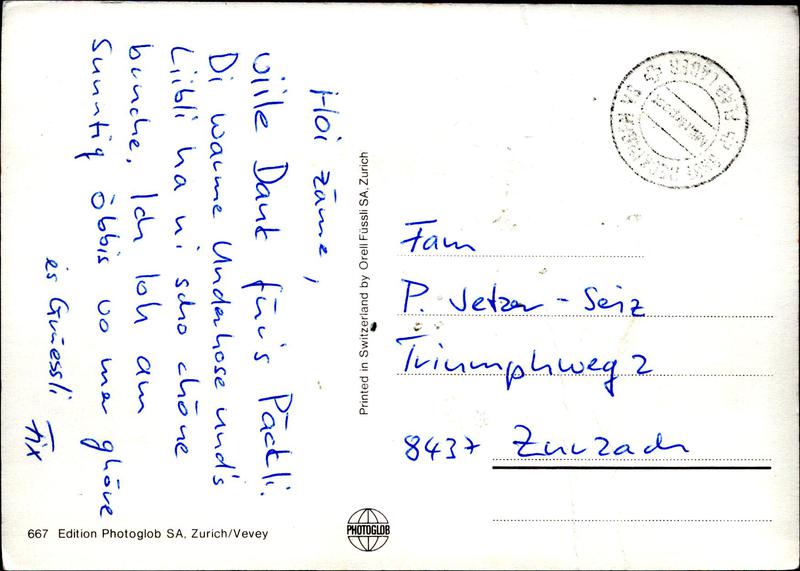 Hoi zäme,
viile Dank für's Päckli.
Di warme Underhose und's
Liibli ha ni scho chöne
bruuche. Ich loh am
Sunntig öbbis vo mer ghöre
es Grüessli Fix
Printed in Switzerland by Orell Füssli SA, Zurich
Fam
P. Jetzer-Seiz
Triumphweg 2
8437 Zurzach
667 Edition Photoglob SA, Zurich/Vevey
PHOTOGLOB